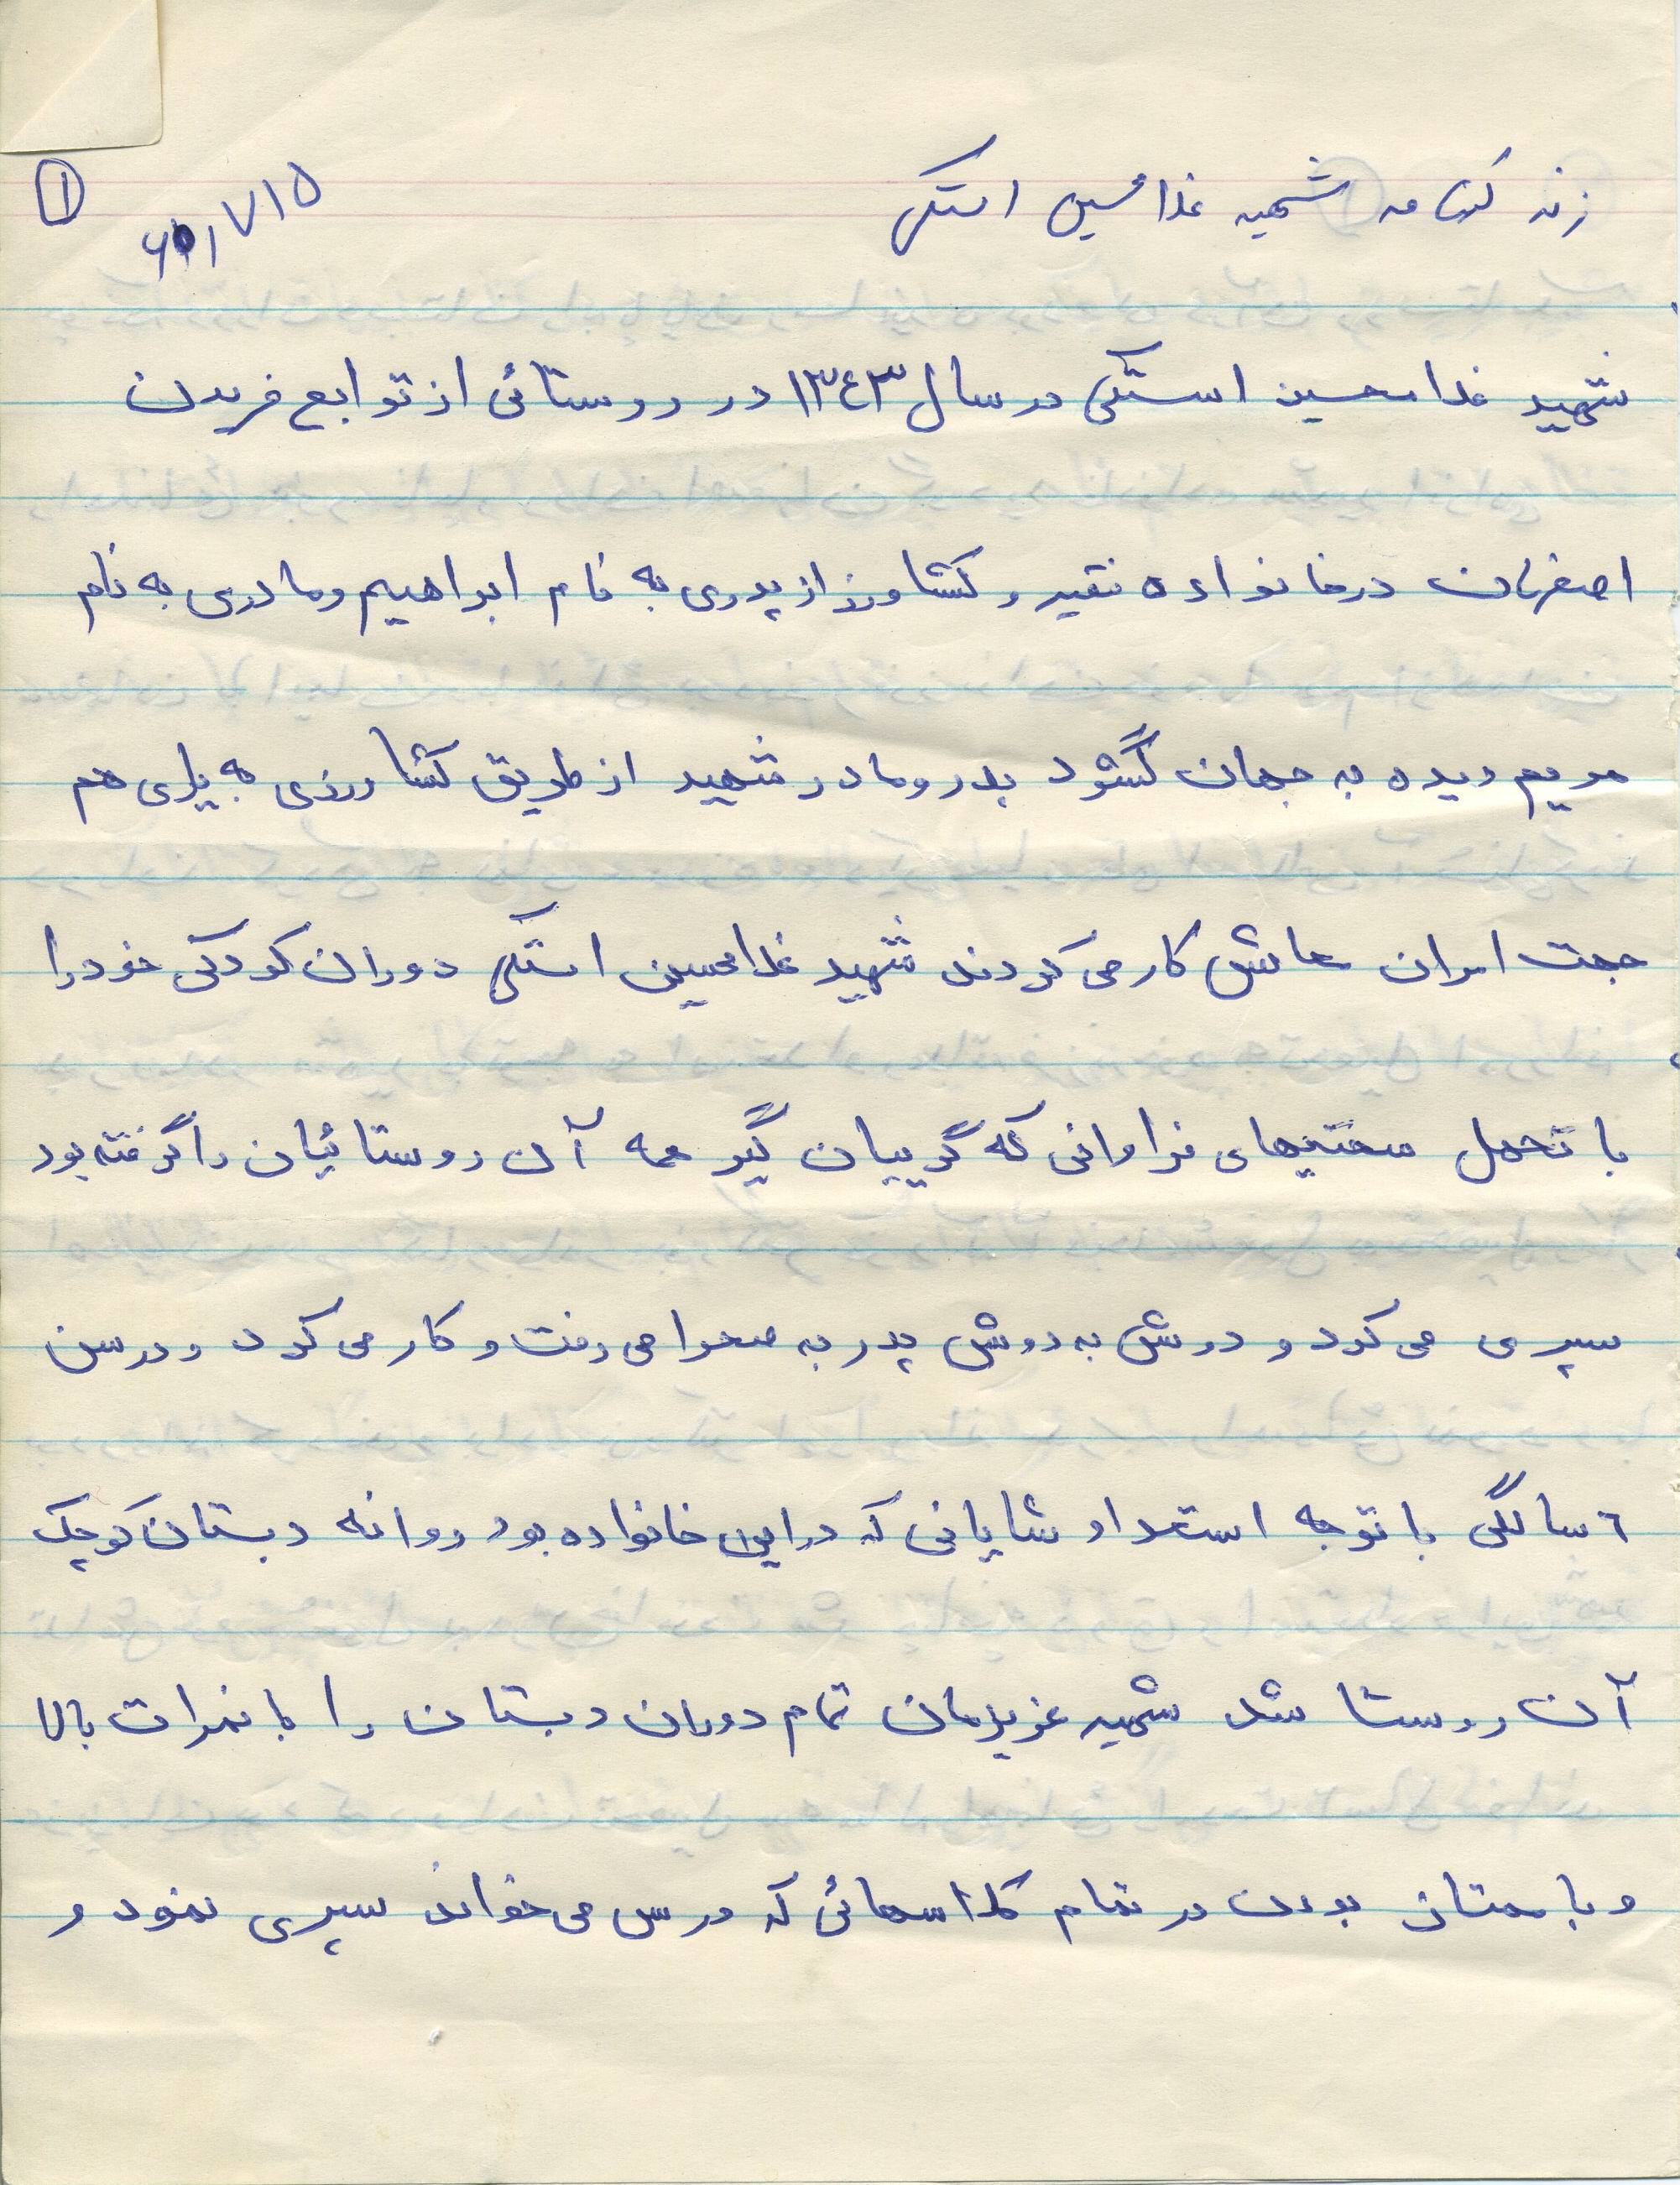 زندگینامه شهید غلامحسین استکی
①
شهید غلامحسین استکی در سال ۱۳٤۳ در روستائی از توابع فریدن
اصفهان درخانواده فقیر و کشاورز از پدری به نام ابراهیم ومادری به نام
مریم دیده به جهان گشود پدر ومادر شهید از طریق کشاورزی به یاری هم
جهت امرار معاش کار می کردند شهید غلامحسین استکی دوران کودکی خود را
با تحمل سختیهای فراوانی که گریبان گیر همه آن روستائیان را گرفته بود
سپری می کرد و دوش به دوش پدر به صحرا می رفت و کار می کرد و در سن
٦ سالگی با توجه استعداد شایانی که در این خانواده بود روانه دبستان کوچک
آن روستا شد شهید عزیزمان تمام دوران دبستان را با نمرات بالا
و با ممتاز بودن در تمام کلاسهائی که درس می خواند سپری نمود و